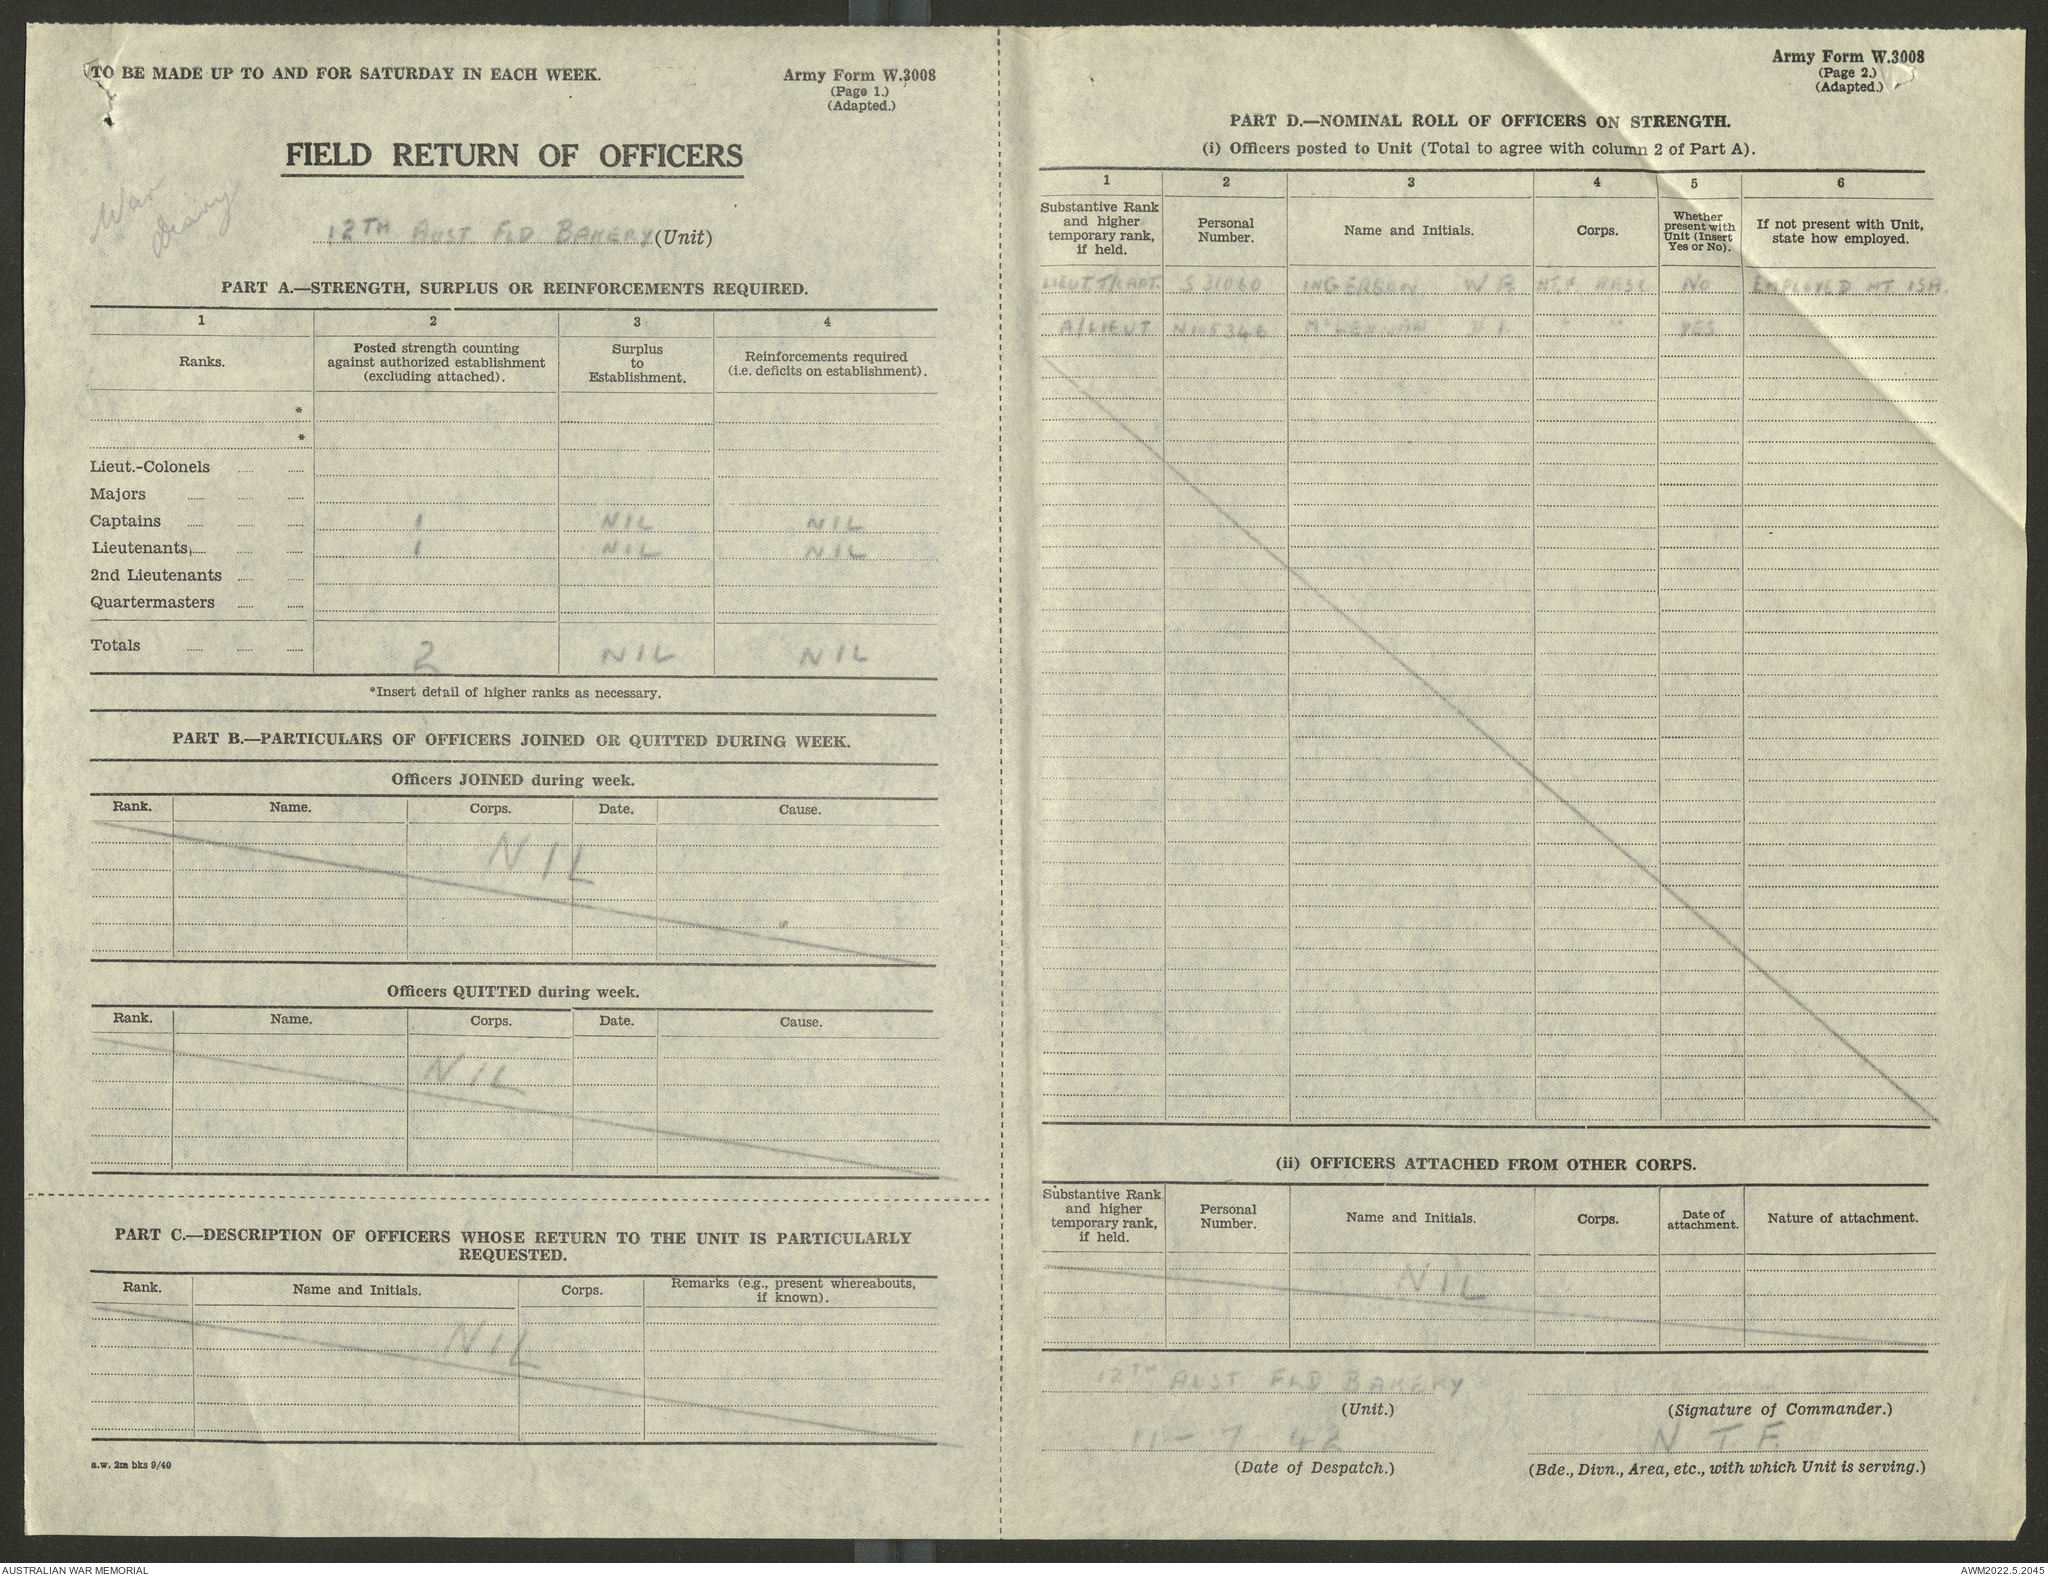 TO BE MADE UP TO AND FOR SATURDAY IN EACH WEEK.
Army Form W.3008
(Page 1.)
(Adapted.)
FIELD RETURN OF OFFICERS
War
Diary
12TH AUST FLD BAKERY (Unit)
PART A.—STRENGTH, SURPLUS OR REINFORCEMENTS REQUIRED.
1 2 3 4
Ranks. Posted strength counting against authorized establishment (excluding attached). Surplus to Establishment. Reinforcements required (i.e. deficits on establishment).
*
*
Lieut.-Colonels
Majors
Captains 1 NIL NIL
Lieutenants 1 NIL NIL
2nd Lieutenants
Quartermasters
Totals 2 NIL NIL
*Insert detail of higher ranks as necessary.
PART B.—PARTICULARS OF OFFICERS JOINED OR QUITTED DURING WEEK.
Officers JOINED during week.
Rank. Name. Corps. Date. Cause.
NIL
Officers QUITTED during week.
Rank. Name. Corps. Date. Cause.
NIL
PART C.—DESCRIPTION OF OFFICERS WHOSE RETURN TO THE UNIT IS PARTICULARLY
REQUESTED.
Rank. Name and Initials. Corps. Remarks (e.g., present whereabouts, if known).
NIL
a.w. 2m bks 9/40
Army Form W.3008
(Page 2.)
(Adapted.)
PART D.—NOMINAL ROLL OF OFFICERS ON STRENGTH.
(i) Officers posted to Unit (Total to agree with column 2 of Part A).
1 2 3 4 5 6
Substantive Rank and higher temporary rank, if held. Personal Number. Name and Initials. Corps. Whether present with Unit (Insert Yes or No). If not present with Unit, state how employed.
LIEUT T/CAPT. S31060 INGERSON W R AASC NO EMPLOYED MT ISA.
A/LIEUT McLENNAN " " YES
(ii) OFFICERS ATTACHED FROM OTHER CORPS.
Substantive Rank and higher temporary rank, if held. Personal Number. Name and Initials. Corps. Date of attachment. Nature of attachment.
NIL
12TH AUST FLD BAKERY
(Unit.) (Signature of Commander.)
11 - 7 42 N T F
(Date of Despatch.) (Bde., Divn., Area, etc., with which Unit is serving.)
AUSTRALIAN WAR MEMORIAL
AWM2022.5.2045